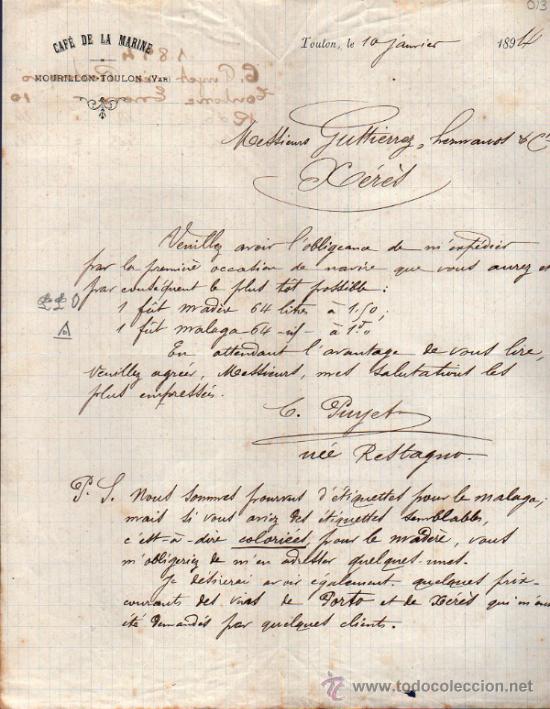 013
CAFÉ DE LA MARINE
MOURILLON-TOULON (VAR)
Toulon, le 10 janvier 1894
Messieurs Guttierrez, hermanos & Cie
Xérès
Veuillez avoir l'obligeance de m'expédier
par la première occasion de navire que vous aurez et
par conséquent le plus tôt possible :
1 fût madère 64 litres à 1.50 ;
1 fût malaga 64 -id- à 1.50
En attendant l'avantage de vous lire,
veuillez agréer, Messieurs, mes salutations les
plus empressées.
C. Puyet
née Restagno.
P. S. Nous sommes pourvus d'étiquettes pour le malaga,
mais si vous aviez des étiquettes semblables,
c'est-à-dire coloriées, pour le madère, vous
m'obligeriez de m'en adresser quelques-unes.
Je désirerai avoir également quelques prix-
courants des vins de Porto et de Xérès qui m'ont
été demandés par quelques clients.
www.todocoleccion.net